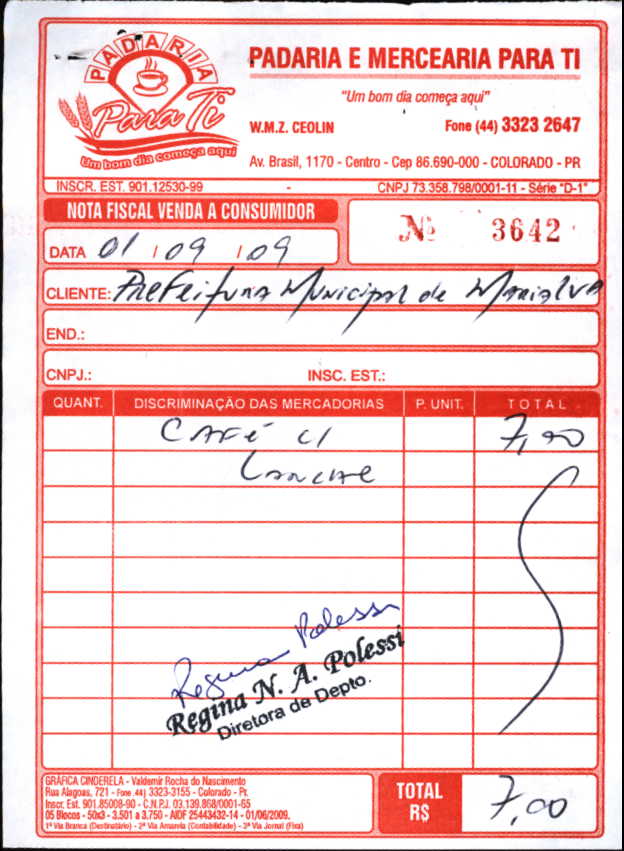 PADARIA
Para Ti
Um bom dia começa aqui
PADARIA E MERCEARIA PARA TI
"Um bom dia começa aqui"
W.M.Z. CEOLIN Fone (44) 3323 2647
Av. Brasil, 1170 - Centro - Cep 86.690-000 - COLORADO - PR
INSCR. EST. 901.12530-99 - CNPJ 73.358.798/0001-11 - Série "D-1"
NOTA FISCAL VENDA A CONSUMIDOR
Nº 3642
DATA 01 / 09 / 09
CLIENTE: Prefeitura Municipal de Marialva
END.:
CNPJ.: INSC. EST.:
QUANT. DISCRIMINAÇÃO DAS MERCADORIAS P. UNIT. TOTAL
CAFÉ C/ 7,00
LANCHE
Regina Polessi
Regina N. A. Polessi
Diretora de Depto.
GRÁFICA CINDERELA - Valdemir Rocha do Nascimento
Rua Alagoas, 721 - Fone .44) 3323-3155 - Colorado - Pr.
Inscr. Est. 901.85008-90 - C.N.P.J. 03.139.868/0001-65
05 Blocos - 50x3 - 3.501 a 3.750 - AIDF 25443432-14 - 01/06/2009.
1ª Via Branca (Destinatário) - 2ª Via Amarela (Contabilidade) - 3ª Via Jornal (Fixa)
TOTAL
R$ 7,00